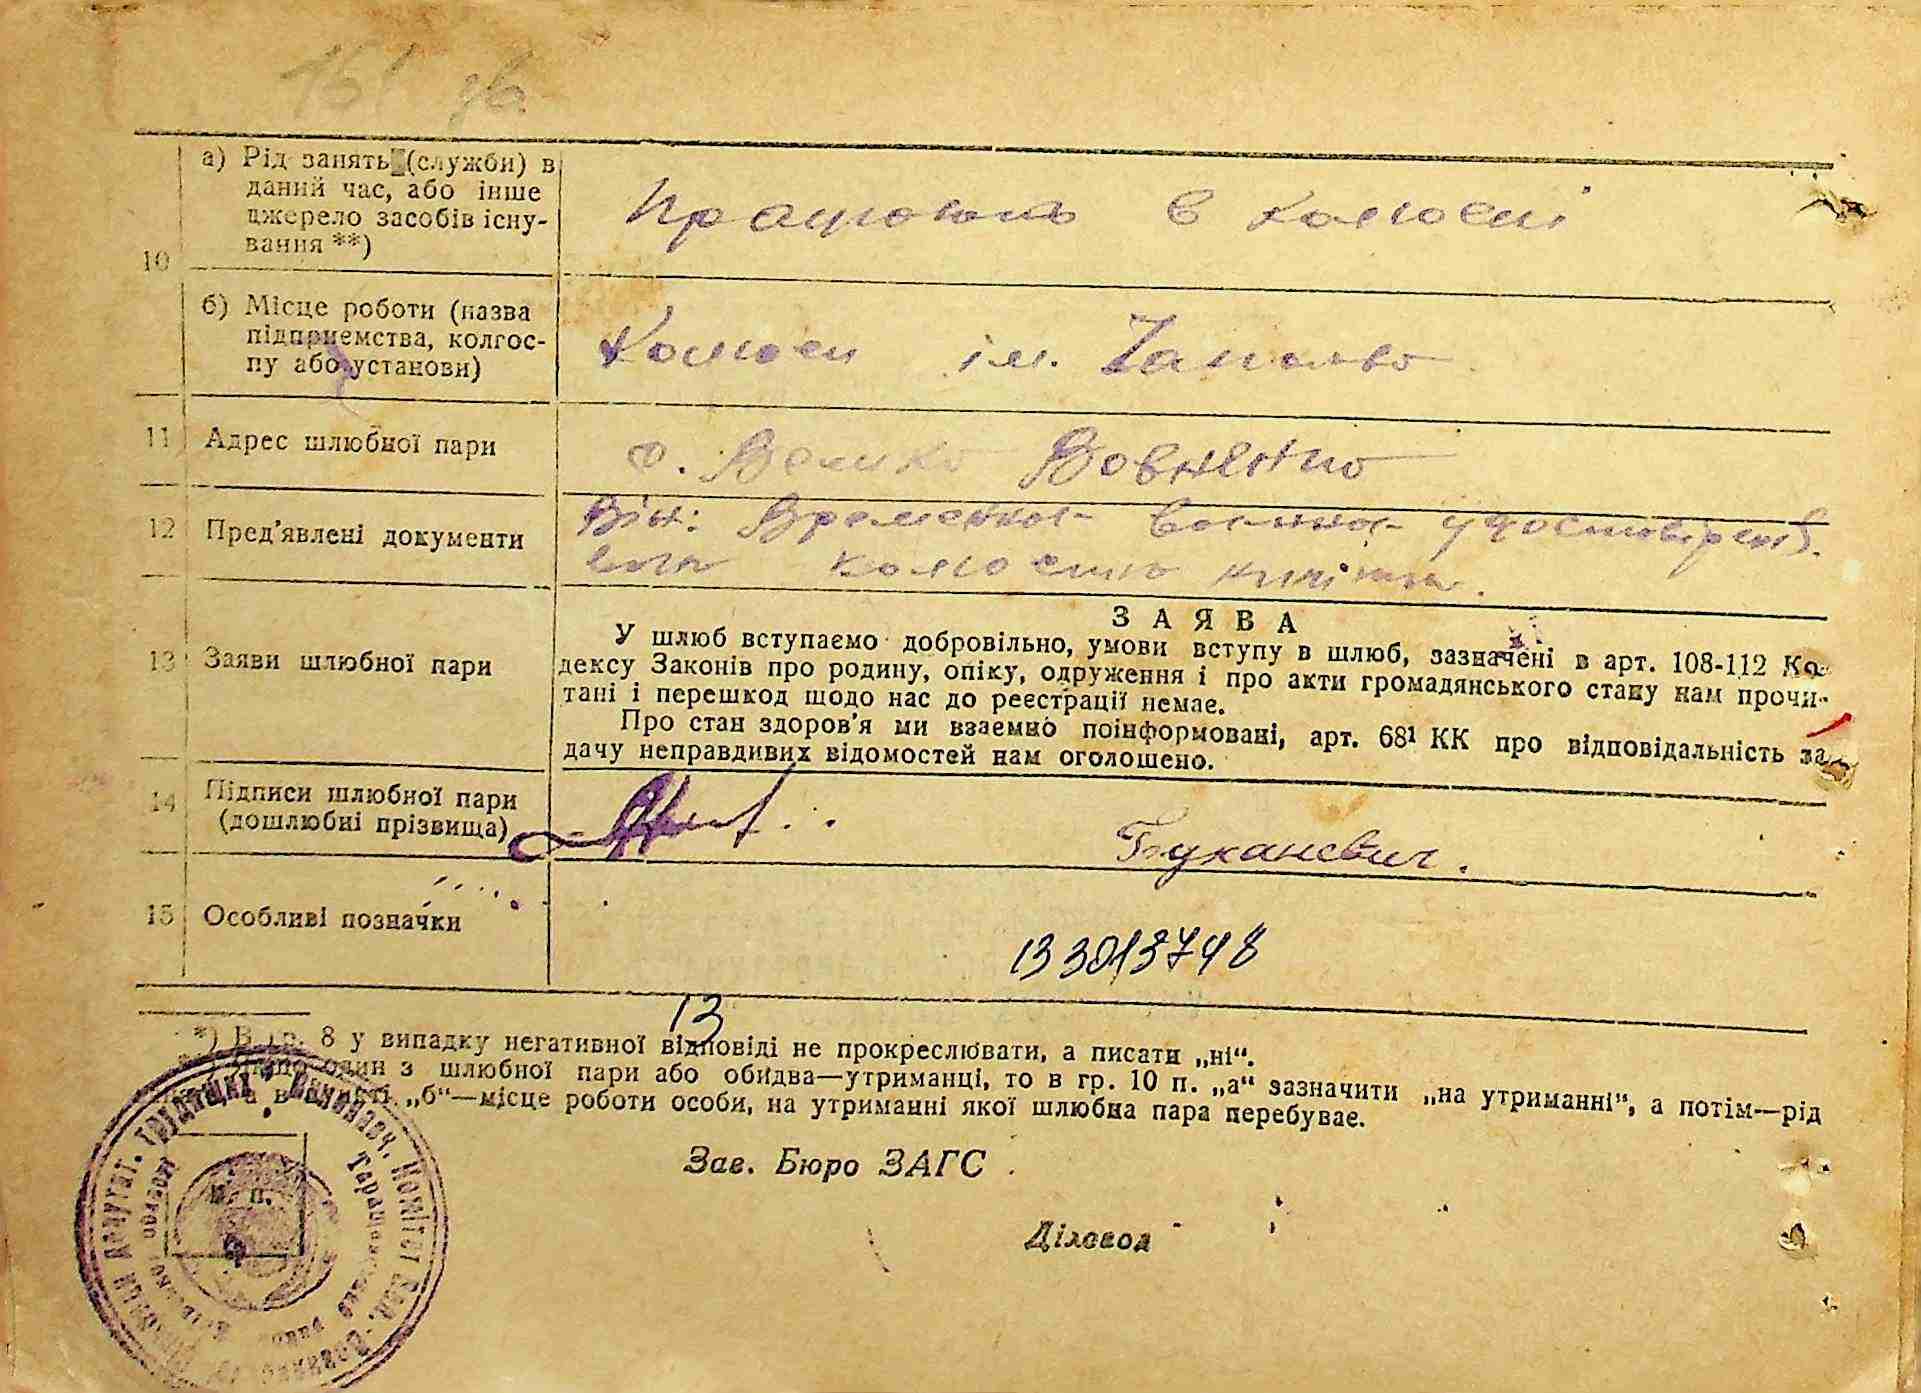 161 зв
а) Рід занять (служби) в
даний час, або інше
джерело засобів існу-
вання **)
Працюють в колгоспі
10
б) Місце роботи (назва
підприємства, колгос-
пу або установи)
Колгосп ім.
11 Адрес шлюбної пари
с. Велико Вовнянка
12 Пред'явлені документи
Він: Временна
13 Заяви шлюбної пари
ЗАЯВА
У шлюб вступаємо добровільно, умови вступу в шлюб, зазначені в арт. 108-112 Ко-
дексу Законів про родину, опіку, одруження і про акти громадянського стану нам прочи-
тані і перешкод щодо нас до реєстрації немає.
Про стан здоров'я ми взаємно поінформовані, арт. 68¹ КК про відповідальність за
дачу неправдивих відомостей нам оголошено.
14 Підписи шлюбної пари
(дошлюбні прізвища)
Буканевич.
15 Особливі позначки
133013748
13
*) В гр. 8 у випадку негативної відповіді не прокреслювати, а писати „ні“.
один з шлюбної пари або обидва—утриманці, то в гр. 10 п. „а“ зазначити „на утриманні“, а потім—рід
а в пункті „б“—місце роботи особи, на утриманні якої шлюбна пара перебуває.
Зав. Бюро ЗАГС
Діловод
М. п.
Депутат. трудящих Виконавч. Комітет